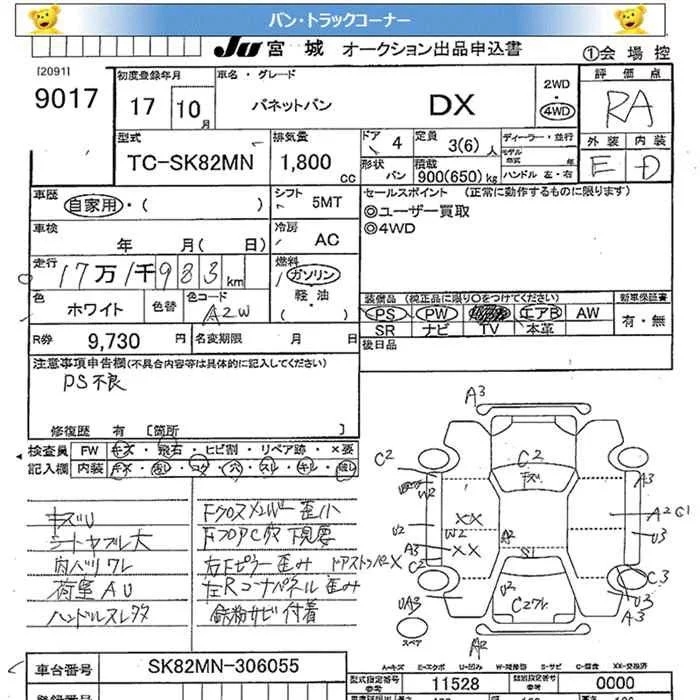 バン・トラックコーナー
JU 宮城 オークション出品申込書
①会場控
[2091]
9017
初度登録年月
17 10月
車名・グレード
バネットバン DX
2WD
4WD
評価点
RA
外装 内装
E D
型式
TC-SK82MN
排気量
1,800 cc
ドア 4
定員 3(6) 人
形状 バン
積載 900(650) kg
ディーラー・並行
モデル年式 年
ハンドル 左・右
車歴 自家用・( )
シフト 5MT
車検 年 月( 日)
冷房 AC
走行 17万1千983km
燃料 ガソリン
軽油
( )
色 ホワイト
色替
色コード A2W
R券 9,730 円
名変期限 月 日
セールスポイント (正常に動作するものに限ります)
◎ユーザー買取
◎4WD
装備品 (純正品に限り○をつけてください)
PS PW エアB AW
SR ナビ TV 本革
新車保証書
有・無
後日品
注意事項申告欄(不具合内容等は具体的に記入してください)
PS不良
修復歴 有 [箇所 ]
検査員記入欄
FW キズ・飛石・ヒビ割・リペア跡・×要
内装
キズU
シートヤブレ大
内バリワレ
荷室AU
ハンドルスレ
歪小
右Fピラー歪み
左Rコーナーパネル歪み
鉄粉サビ付着
A3
C2
C2
キズ
W2
A3
A2 C1
U2
U3
XX
W2
XX
A2
A3
C2
S1
C3
UA3
U2
U3
A3
スペア
A2
A-キズ E-エクボ U-凹み W-補修跡 S-サビ C-腐食 XX-交換済
車台番号 SK82MN-306055
型式指定番号 参考 11528
類別指定番号 参考 0000